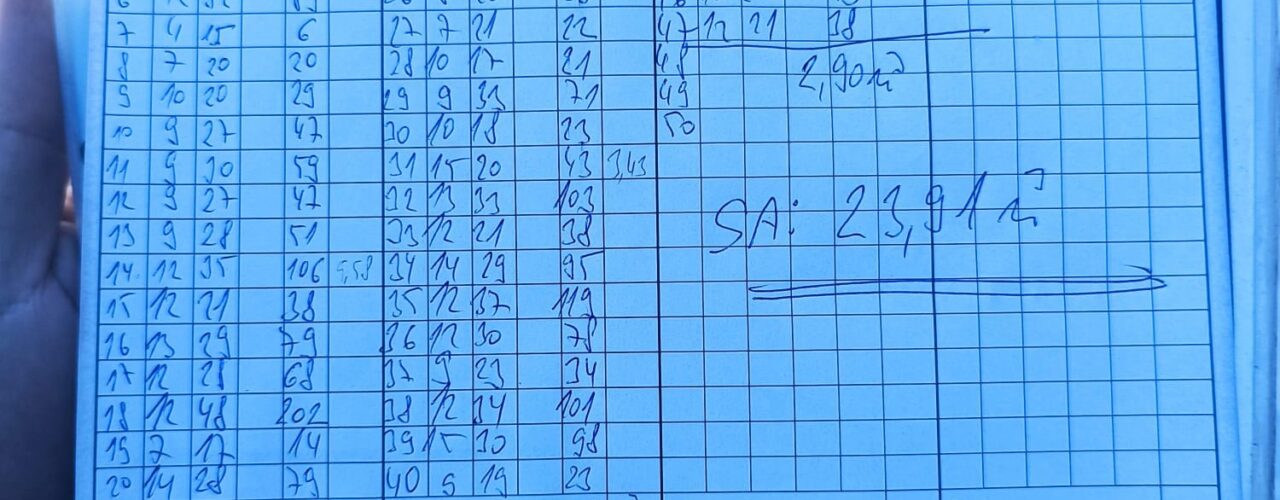 7 4 15 6 27 7 21 22 47 12 21 38
8 7 20 20 28 10 17 21 48 2,90 m³
9 10 20 29 29 9 33 71 49
10 9 27 47 30 10 18 23 50
11 9 30 59 31 15 20 43 3,43
12 9 27 47 32 13 33 103
13 9 28 51 33 12 21 38 SA: 23,91 m³
14. 12 35 106 34 14 29 95
15 12 21 38 35 12 37 119
16 13 29 79 36 12 30 78
17 12 28 68 37 9 23 34
18 12 48 202 38 12 34 101
19 7 17 14 39 15 30 98
20 14 28 79 40 9 19 23